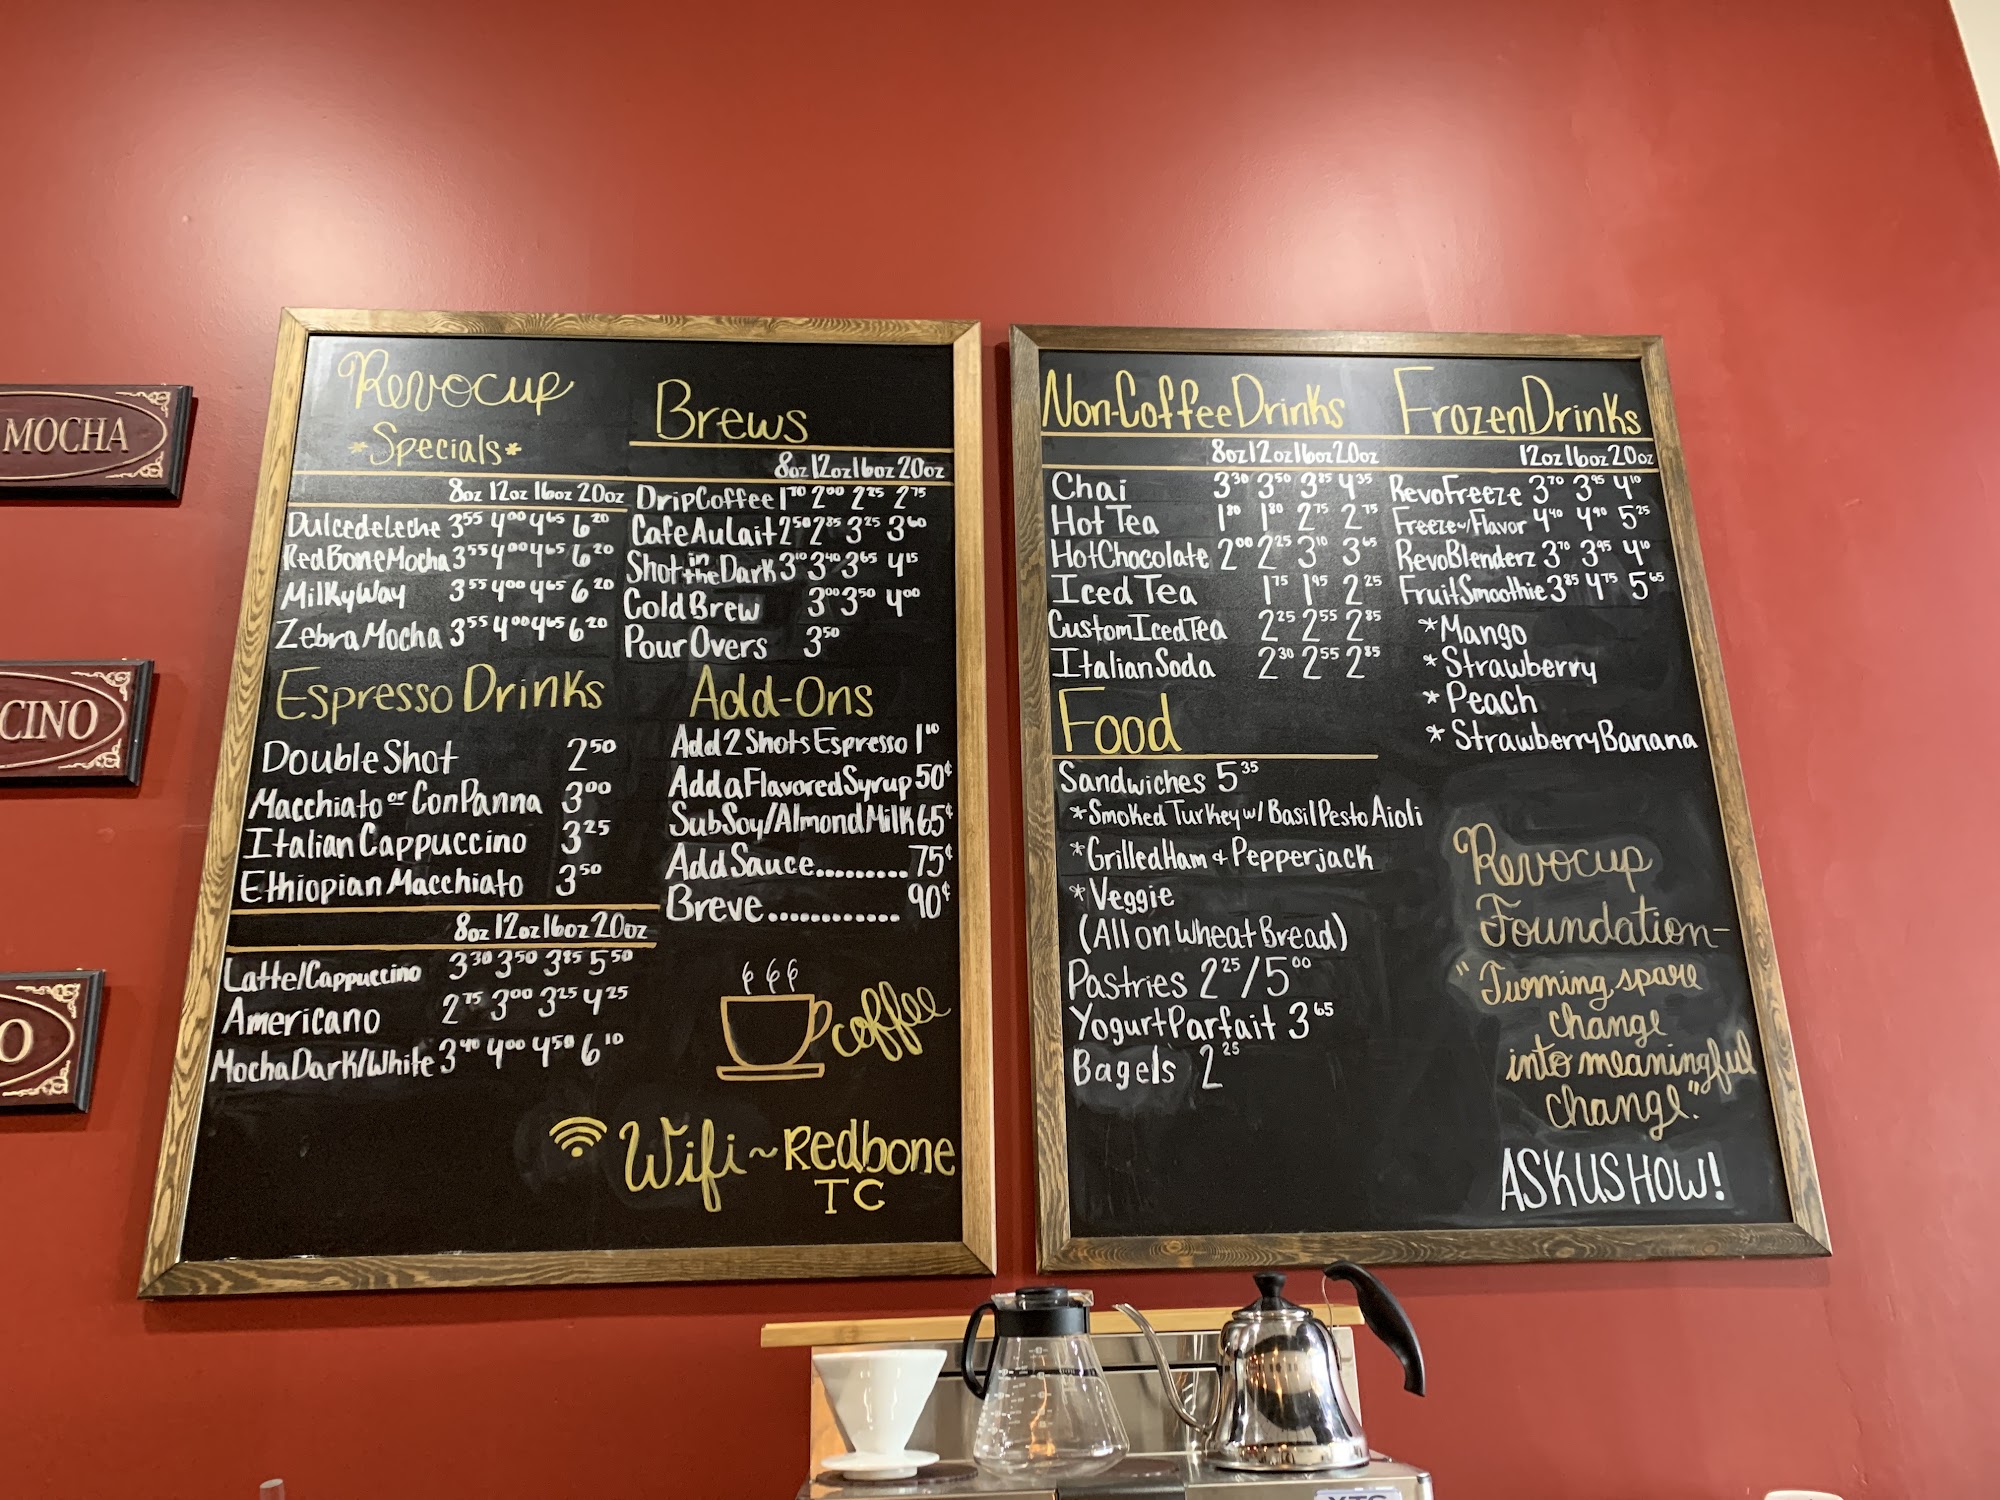 MOCHA
CINO
O
Revocup
*Specials*
8oz 12oz 16oz 20oz
Dulce de Leche 3 55 4 00 4 65 6 20
Red Bone Mocha 3 55 4 00 4 65 6 20
Milky Way 3 55 4 00 4 65 6 20
Zebra Mocha 3 55 4 00 4 65 6 20
Espresso Drinks
Double Shot 2 50
Macchiato or Con Panna 3 00
Italian Cappuccino 3 25
Ethiopian Macchiato 3 50
8oz 12oz 16oz 20oz
Latte/Cappuccino 3 30 3 50 3 85 5 50
Americano 2 75 3 00 3 25 4 25
Mocha Dark/White 3 40 4 00 4 50 6 10
Brews
8oz 12oz 16oz 20oz
Drip Coffee 1 70 2 00 2 25 2 75
Cafe Au Lait 2 50 2 85 3 25 3 60
Shot in the Dark 3 10 3 40 3 65 4 15
Cold Brew 3 00 3 50 4 00
Pour Overs 3 50
Add-Ons
Add 2 Shots Espresso 1 10
Add a Flavored Syrup 50¢
Sub Soy/Almond Milk 65¢
Add Sauce......... 75¢
Breve............ 90¢
coffee
Wifi ~ Redbone
TC
Non-Coffee Drinks
8oz 12oz 16oz 20oz
Chai 3 30 3 50 3 85 4 35
Hot Tea 1 80 1 80 2 75 2 75
Hot Chocolate 2 00 2 25 3 10 3 65
Iced Tea 1 75 1 95 2 25
Custom Iced Tea 2 25 2 55 2 85
Italian Soda 2 30 2 55 2 85
Food
Sandwiches 5 35
*Smoked Turkey w/ Basil Pesto Aioli
*Grilled Ham + Pepperjack
*Veggie
(All on Wheat Bread)
Pastries 2 25 / 5 00
Yogurt Parfait 3 65
Bagels 2 25
Frozen Drinks
12oz 16oz 20oz
Revo Freeze 3 70 3 95 4 10
Freeze w/ Flavor 4 40 4 90 5 25
Revo Blenderz 3 70 3 95 4 10
Fruit Smoothie 3 85 4 75 5 65
*Mango
*Strawberry
*Peach
*Strawberry Banana
Revocup
Foundation-
"Turning spare
change
into meaningful
change."
ASK US HOW!